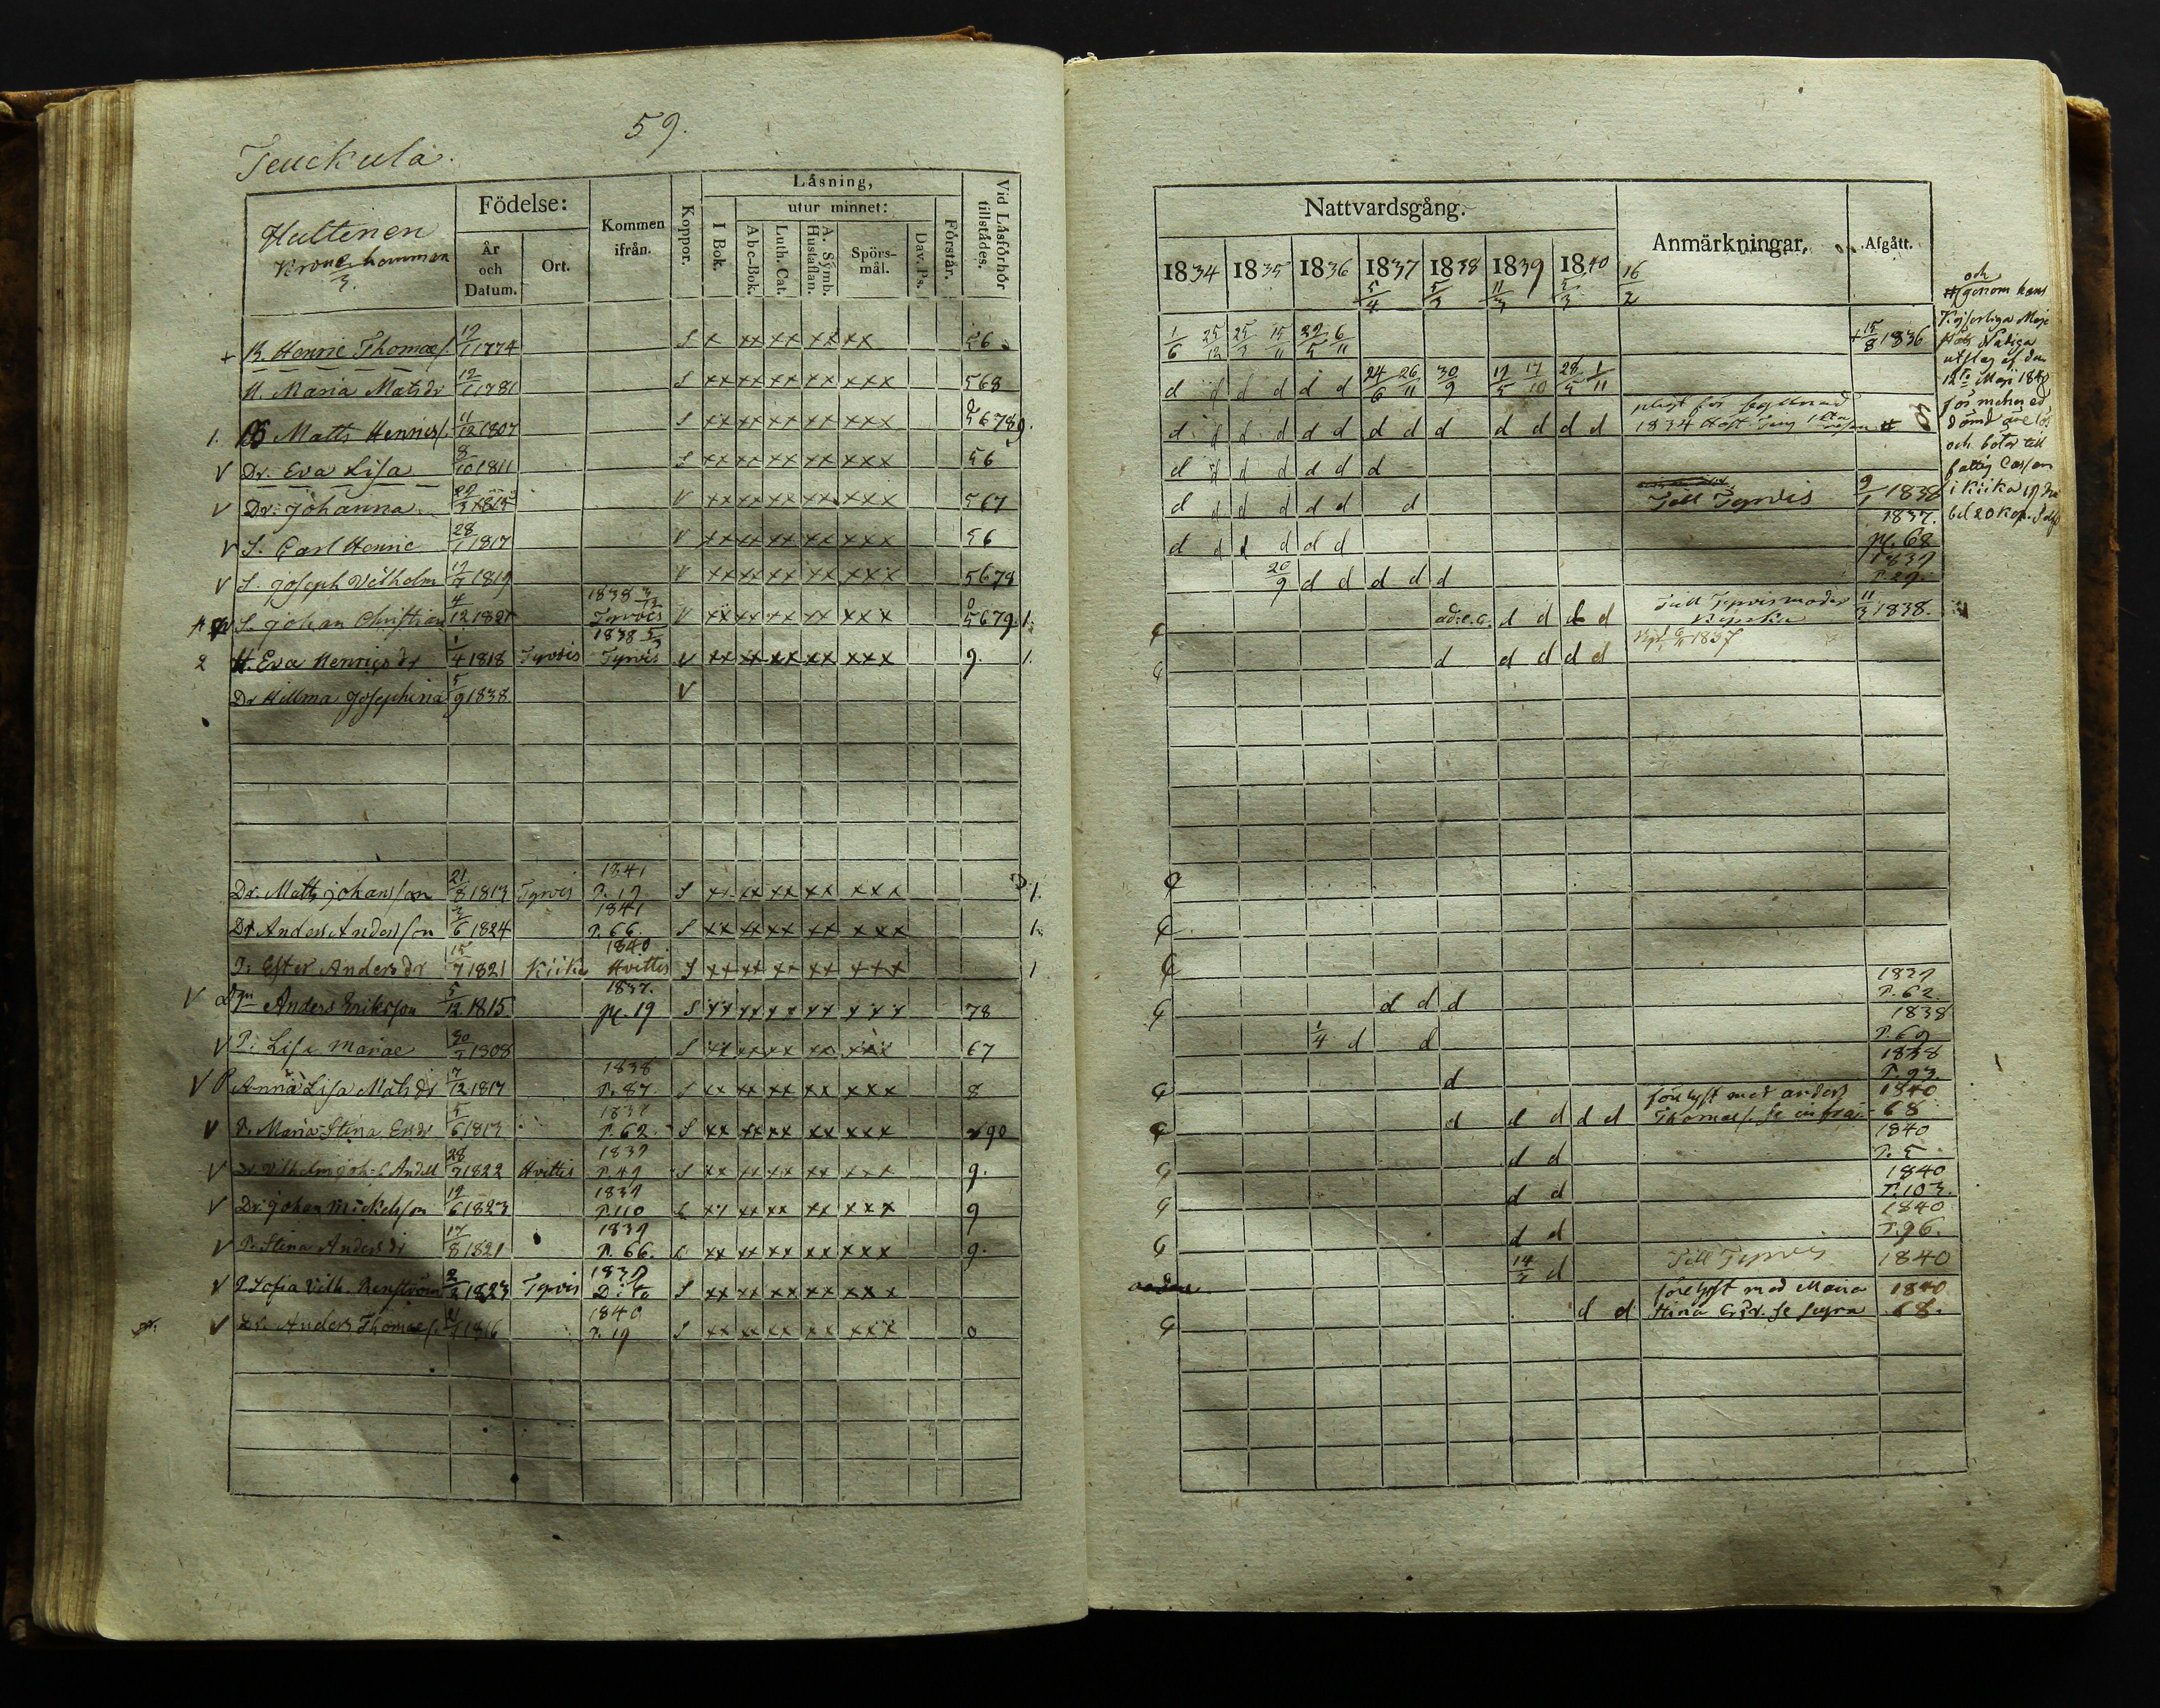 59.
Teuckula.
Hultinen
Krono hemman
3.
Födelse:
År och Datum.
Ort.
Kommen ifrån.
Koppor.
Läsning,
I Bok.
utur minnet:
A b c-Bok.
Luth. Cat.
A. Symb. Hustaflan.
Spörs-mål.
Dav. Ps.
Förstår.
Vid Läsförhör tillstädes.
+ B. Henric Thomaes. 1774 S x xx xx xx xx 56
H. Maria Matsdr 1781 S xx xx xx xx xxx 568
1. Matts Henrics. 11/12 1807 S xx xx xx xx xxx 56789.
V Dr. Eva Lisa 8/10 1811 S xx xx xx xx xxx 56
V Dr. Johanna 1815 V xx xx xx xx xxx 567
V S. Carl Henric 28/1 1817 V xx xx xx xx xxx 56
V S. Joseph Vilhelm 1819 V xx xx xx xx xxx 5678
S. Johan Christian 4/12 1821 1838 Tyrvis V xx xx xx xx xxx 5679. 1.
2 H. Eva Henricsdr 1/4 1818 Tyrvis 1838 Tyrvis V xx xx xx xx xxx 9. 1.
Dr Hillma Josephina 5/9 1838. V
Dr. Matts Johansson 21/8 1813 Tyrvis 1841 P. 19 S xx xx xx xx xxx 1.
Dr Anders Andersson 6 1824 1841 P. 66. S xx xx xx xx xxx 1.
P: Ester Andersdr 15/7 1821 Kiika 1840 Hvittis S xx xx xx xx xxx 1
V Anders Eriksson 5/12 1815 1837. pl. 19 S xx xx xx xx xxx 78
V P: Lisa Mariae 1808 S xx xx xx xx xxx 67
V P Anna Lisa Matsdr 17/12 1817 1838 P. 87. S xx xx xx xx xxx 8
V P. Maria Stina Ersdr 5/6 1813 1837 P. 62. S xx xx xx xx xxx 90
V Dr. Vilhelm Joh. 28/7 1822 Hvittis 1839 P. 49 S xx xx xx xx xxx 9.
V Dr. Johan Mickelsson 6 1823 1839 P. 110 xx xx xx xx xxx 9
V P. Stina Andersdr 17/8 1821 1839 P. 66. xx xx xx xx xxx 9.
V P. Sofia Vilh. Renström 1823 Tyrvis 1839 Dito S xx xx xx xx xxx
V Dr. Anders Thomaes. 1816 1840 P. 19 S xx xx xx xx xxx 0
Nattvardsgång.
1834 1835 1836 1837 1838 1839 1840 16/2
5/4 5/3 11/3 5/3
Anmärkningar,
Afgått.
1/6 25/12 25/3 15/11 6/11 + 15/8 1836
d d d d d d 24/6 26/11 30/9 17/5 17/10 28/5 1/11
d d d d d d d d d d d d d
1834
d d d d d d d
d d d d d d d Till Tyrvis 9/1 1838
d d d d d d 1837. pl. 68
20/9 d d d d d 1839 P. 29.
ad. e. c. d d d d Till Tyrvis 11/3 1838.
d d d d d 1837
d d d 1839 P. 62.
1/4 d d 1838 P. 69
d 1838 P. 93.
d d d d d förlyst med anders Thomaes. se infra 1840 68
d d 1840 P. 5
d d 1840 P. 103.
d d 1840 P. 96.
14/3 d Till Tyrvis 1840
d d förelyst med Maria Stina Ersdr. se supra 1840 68.
och
genom hans
Kejserliga Maje
stäts Nådiga
utslag af den
12te Maji 1840
för mened
dömd
och böter till
fattig Cassan
i Kiika
20 Kop. Silf